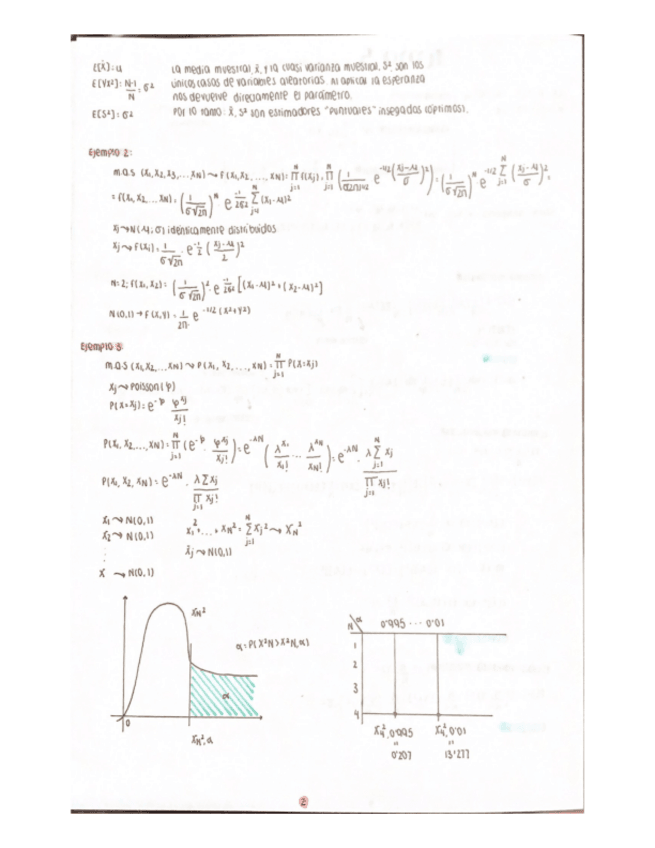 E[X̄]: μ
La media muestral, x̄, y la cuasi varianza muestral, S² son los
E[Vx²]: N-1/N · σ²
únicos casos de variables aleatorias. Al aplicar la esperanza
nos devuelve directamente el parámetro.
E[S²]: σ²
Por lo tanto: x̄, S² son estimadores "puntuales" insegados (óptimos).
Ejemplo 2:
m.a.s (x₁, x₂, x₃, ... xN) ⇝ f(x₁, x₂, ..., xN) = ∏ʲ⁼¹ᴺ f(xj) =
= f(x₁, x₂, ..., xN) = (1/σ√2π)ᴺ e^(-1/2σ² Σ(xj-μ)²)
xj ⇝ N(μ, σ) idénticamente distribuidos
xj ⇝ f(xj) = 1/σ√2π · e^(-1/2 (xj-μ/2)²)
N=2; f(x₁, x₂) = (1/σ√2π)² · e^(-1/2σ² [(x₁-μ)² + (x₂-μ)²])
N(0,1) → f(x,y) = 1/2π · e^(-1/2 (x²+y²))
Ejemplo 3:
m.a.s (x₁, x₂, ..., xN) ⇝ P(x₁, x₂, ..., xN) = ∏ʲ⁼¹ᴺ P(X=xj)
xj ⇝ Poisson (φ)
P(X=xj) = e^-φ φ^xj/xj!
P(x₁, x₂, ..., xN) = ∏ʲ⁼¹ᴺ (e^-φ · φ^xj/xj!) = e^-λN (λ^x₁/x₁! ... λ^xN/xN!) = e^-λN · λ Σ xj / ∏ xj!
P(x₁, x₂, xN) = e^-λN · λ Σ xj / ∏ xj!
x₁ ⇝ N(0,1)
x₂ ⇝ N(0,1)
x₁² + ... + xN² = Σ xj² ⇝ XN²
⋮
xj ⇝ N(0,1)
x ⇝ N(0,1)
XN²
α = P(X²N > X²N,α)
α
0
XN², α
N α
0'995 ... 0'01
1
2
3
4
X₄², 0'995
X₄², 0'01
"
"
0'207
13'277
2